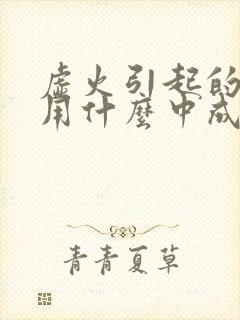 虚火引起的
用什麼中成
青青夏草